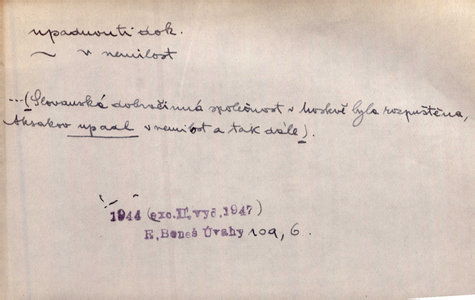 upadnouti dok.
~ v nemilost
...(Slovanská dobročinná společnost v Moskvě byla rozpuštěna,
Aksakov upadl v nemilost a tak dále).
1944 (exc.II.vyd.1947)
E.Beneš Úvahy 109, 6.